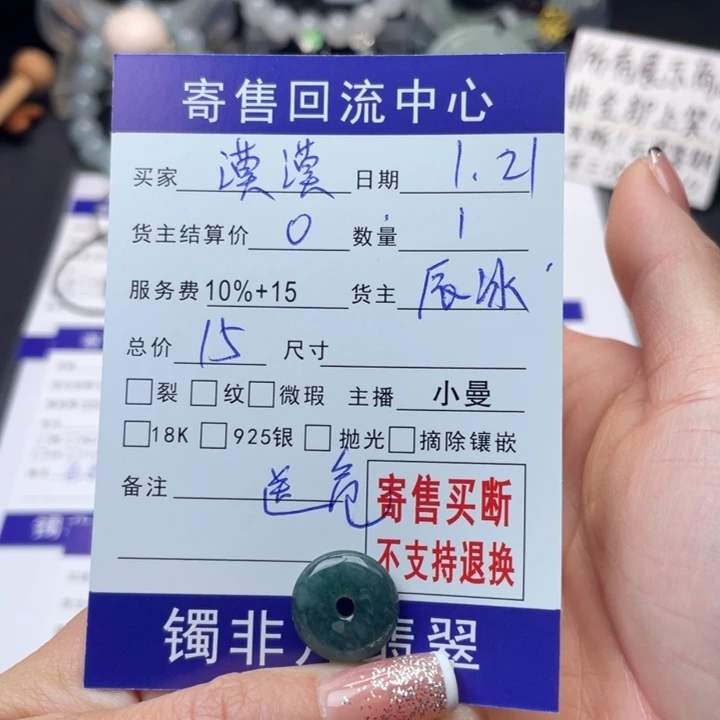 寄售回流中心
买家 漠漠 日期 1.21
货主结算价 0 数量 1
服务费 10%+15 货主 辰冰
总价 15 尺寸
裂 纹 微瑕 主播 小曼
18K 925银 抛光 摘除镶嵌
备注 送
寄售买断
不支持退换
镯非 翡翠
所有展示商